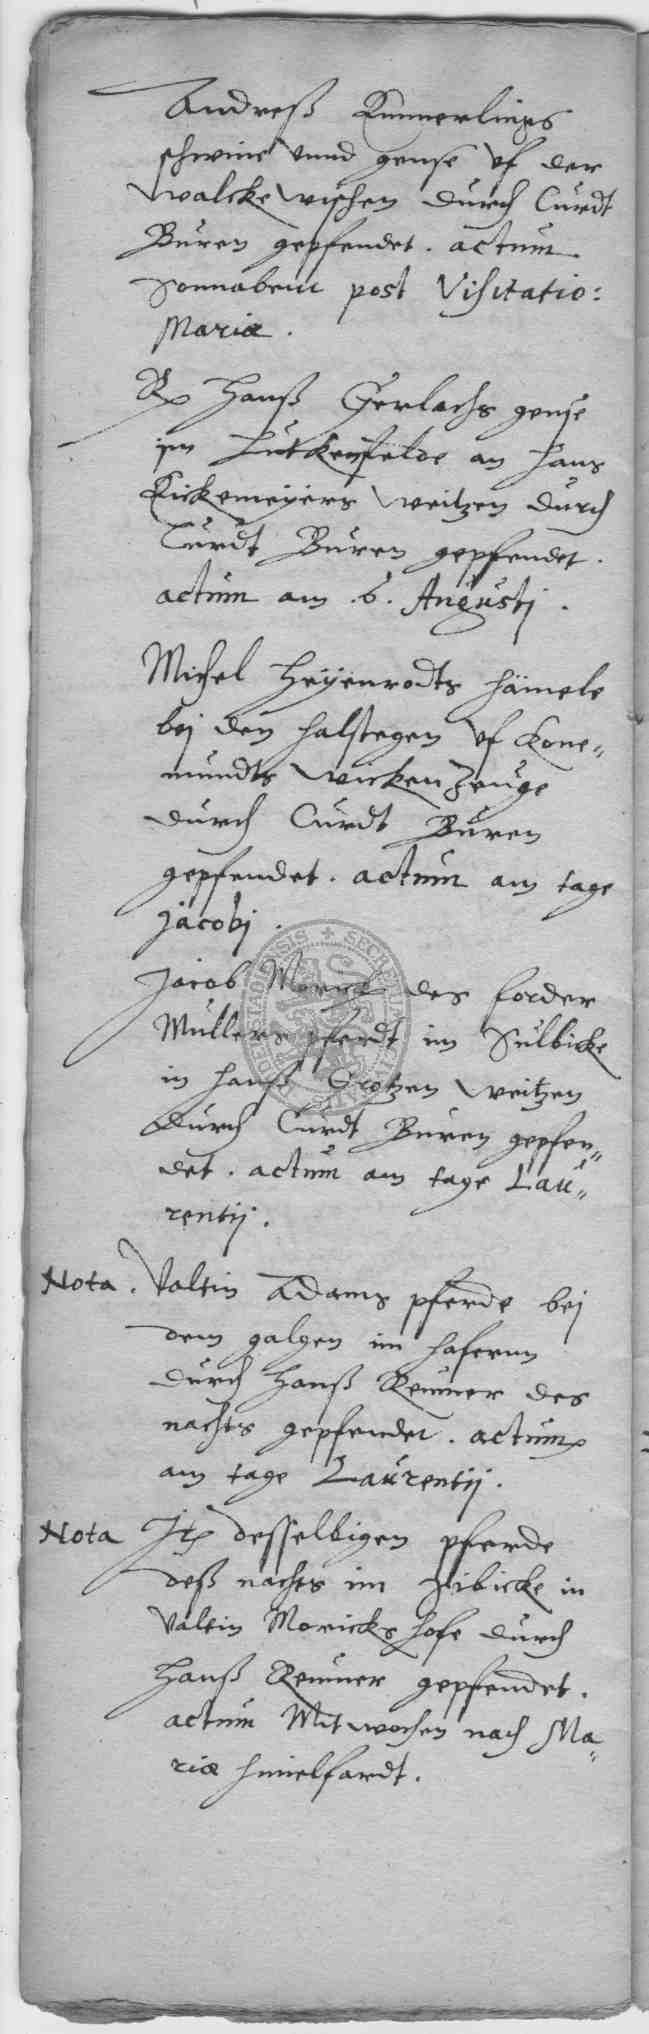 Andreß Kummerlings
schwine vnnd gense vf der
walcke wischen durch Curdt
Buren gepfendet. actum
Sonnabent post Visitatio:
Mariæ.
Hanß Gerlachs gense
im Lutkenfelde an Hans
Kickemeyers weitzen durch
Curdt Buren gepfendet.
actum am .6. Augustj.
Michel Heyenrodts hämele
bej den halstegen vf Kone„
mundts wicken Zeuge
durch Curdt Buren
gepfendet. actum am tage
Jacobj.
Jacob des forder
Mullers pferdt im Sulbicke
in Hanß Grotzen weitzen
durch Curdt Buren gepfen„
det. actum am tage Lau„
rentij.
Nota. Valtin Adams pferde bej
dem galgen im hafernn
durch Hanß Remmer des
nachts gepfendet. actum
am tage Laurentij.
Nota It desselbigen pferde
deß nachts im Zibicke in
Valtin Moricks hofe durch
Hanß Remmer gepfendet.
actum Mitwochen nach Ma„
riæ himelfardt.
SECRETUM